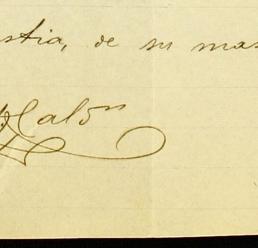 stia, de su mas
Calón